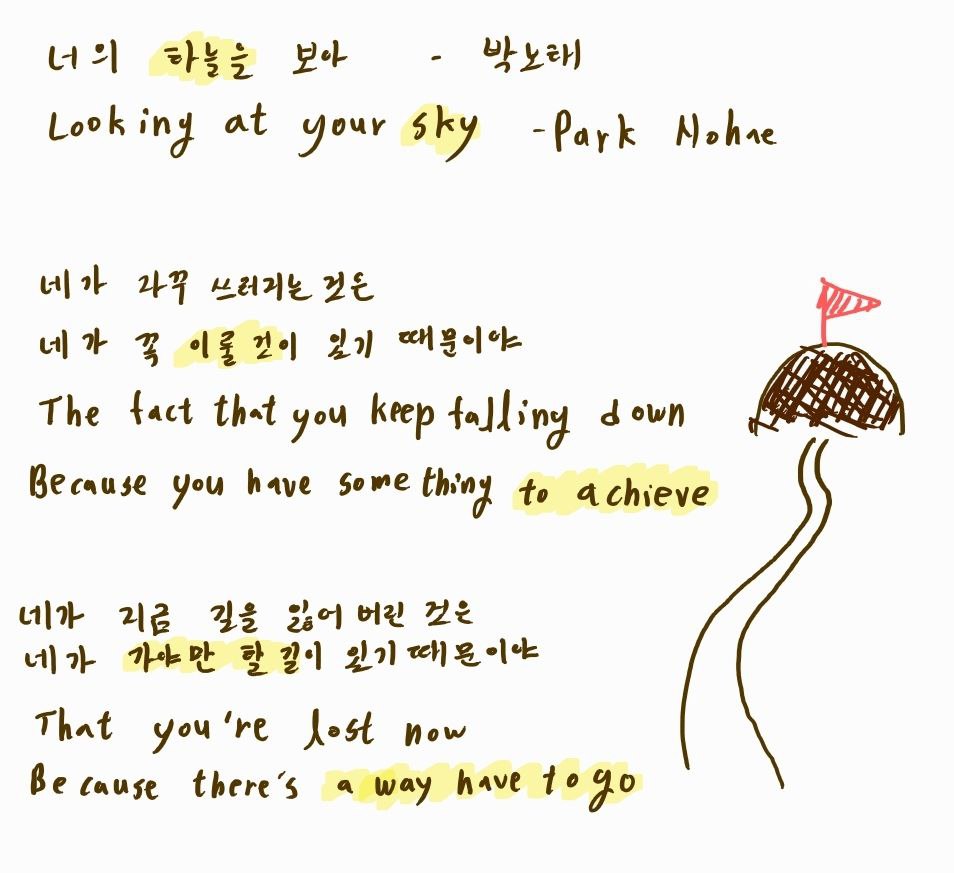 너의 하늘을 보아 - 박노해
Looking at your sky - Park Nohae
네가 자꾸 쓰러지는 것은
네가 꼭 이룰 것이 있기 때문이야
The fact that you keep falling down
Because you have something to achieve
네가 지금 길을 잃어 버린 것은
네가 가야만 할 길이 있기 때문이야
That you're lost now
Because there's a way have to go